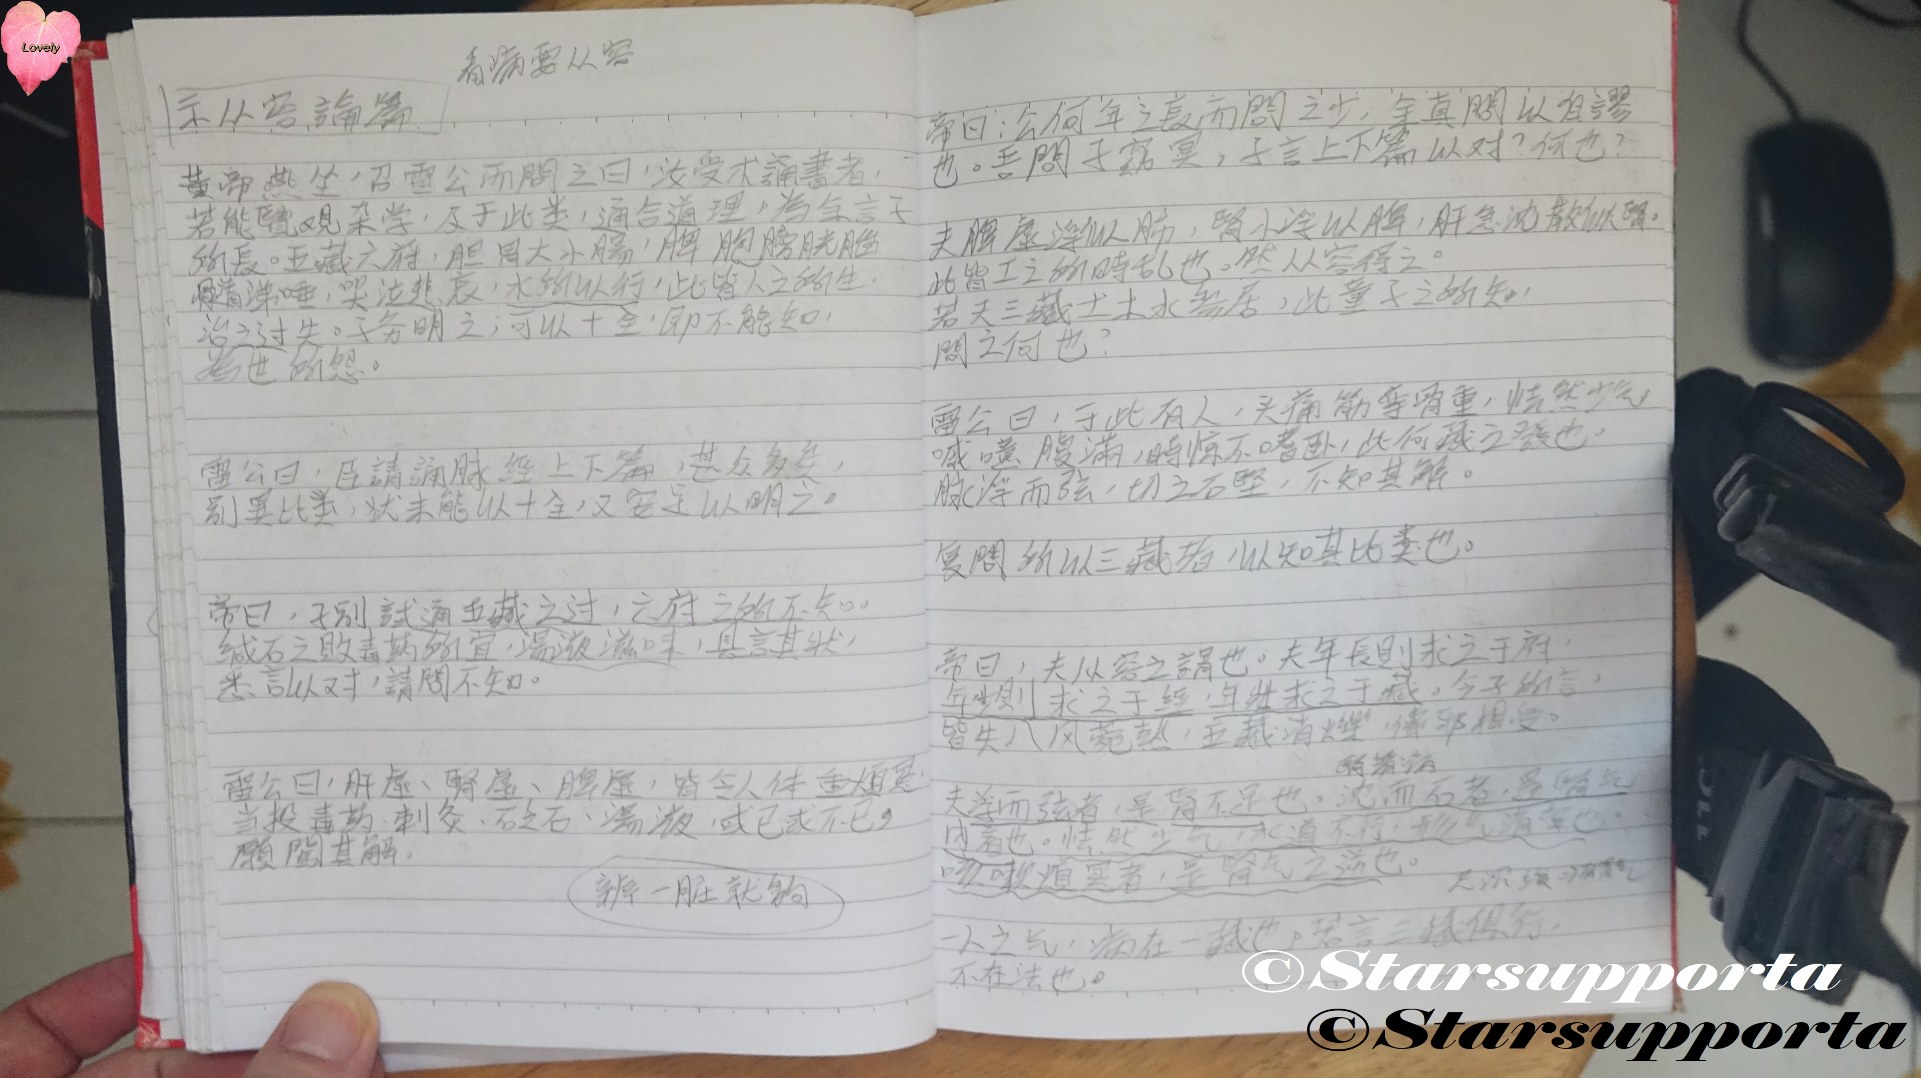 Lovely
看病要从容
示从容論篇
黄帝燕坐，召雷公而問之曰，汝受术誦書者，
若能覽观杂学，及于比类，通合道理，為余言子
所長。五藏六府，胆胃大小腸，脾胞膀胱，脑
髓涕唾，哭泣悲哀，水所从行，此皆人之所生，
治之过失。子务明之，可以十全，即不能知，
為世所怨。
雷公曰，臣請誦脉經上下篇，甚众多矣，
别異比类，犹未能以十全，又安足以明之。
帝曰，子别試通五藏之过，六府之所不知。
鍼石之敗毒药所宜，湯液滋味，具言其状，
悉言以对，請問不知。
雷公曰，肝虚、腎虚、脾虚，皆令人体重煩冤，
当投毒药、刺灸、砭石、湯液，或已或不已，
願聞其解。
辨一脏就夠
帝曰：公何年之長而問之少，余真問以自謬
也。吾問子窈冥，子言上下篇以对？何也？
夫脾虚浮似肺，腎小浮似脾，肝急沈散似腎。
此皆工之所時乱也。然从容得之。
若夫三藏土木水参居，此童子之所知，
問之何也？
雷公曰，于此有人，头痛筋挛骨重，怯然少气
噦噫腹滿，時惊不嗜卧，此何藏之發也。
脉浮而弦，切之石堅，不知其解。
复問所以三藏者，以知其比类也。
帝曰，夫从容之謂也。夫年長則求之于府，
年少則求之于經，年壮求之于藏，今子所言，
皆失八风菀热，五藏消爍，傳邪相受。
夫浮而弦者，是腎不足也。沈而石者，是腎气
内着也。怯然少气，水道不行，形气消索也。
咳嗽煩冤者，是腎气之逆也。
一人之气，病在一藏也。若言三藏俱行，
不在法也。
©Starsupporta
©Starsupporta